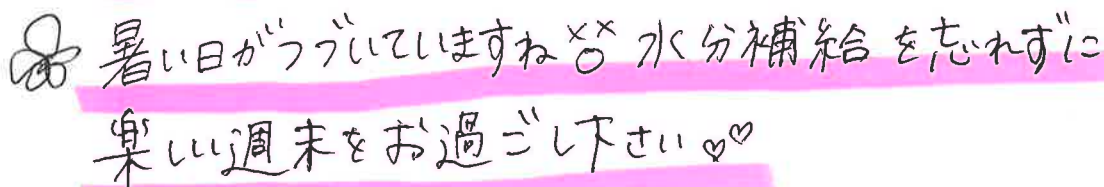 暑い日がつづいていますね××○ 水分補給を忘れずに
楽しい週末をお過ごし下さい♡♡